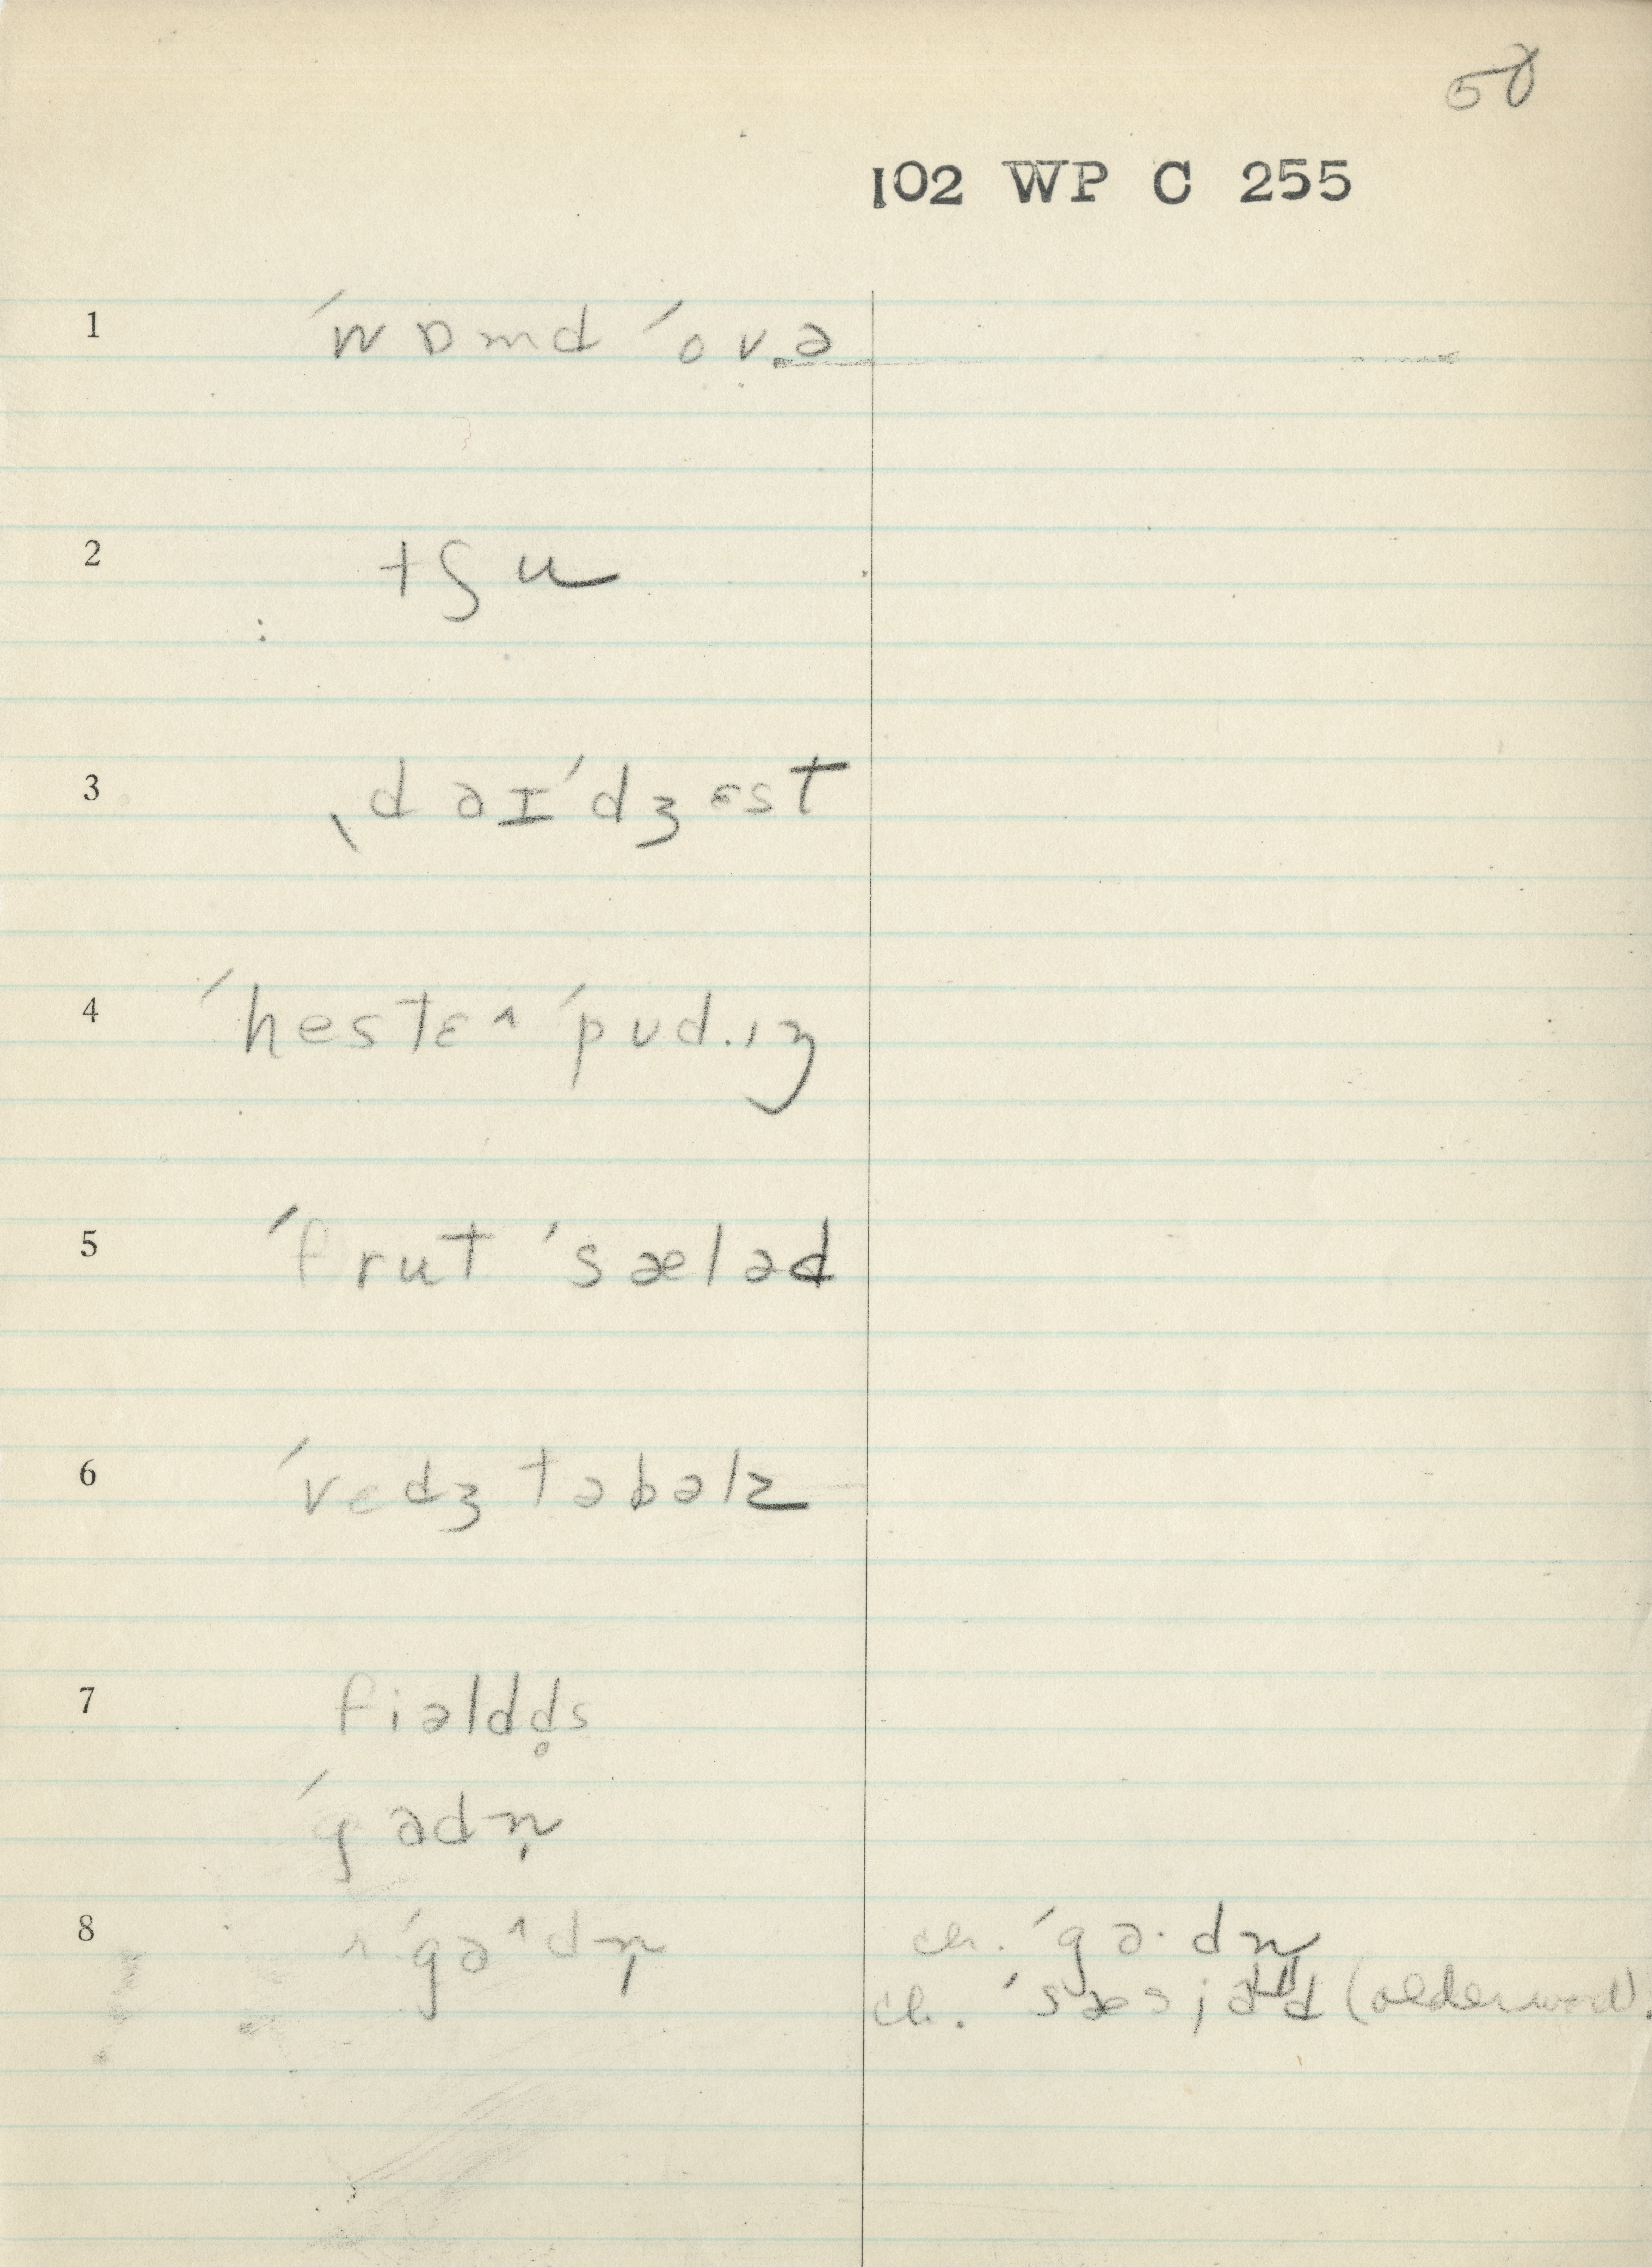 58
102 WP C 255
1 ˈwɒmd ˈovə
2 tʃu
3 ˌdaɪˈdʒɛst
4 ˈhestɛ^ ˈpud.ɪŋ
5 ˈfrut ˈsæləd
6 ˈvɛdʒtəbəlz
7 fiəldd̥s
ˈgadn̩
8 ˈga^dn̩ ch. ˈga·dn̩
ch. (older word).